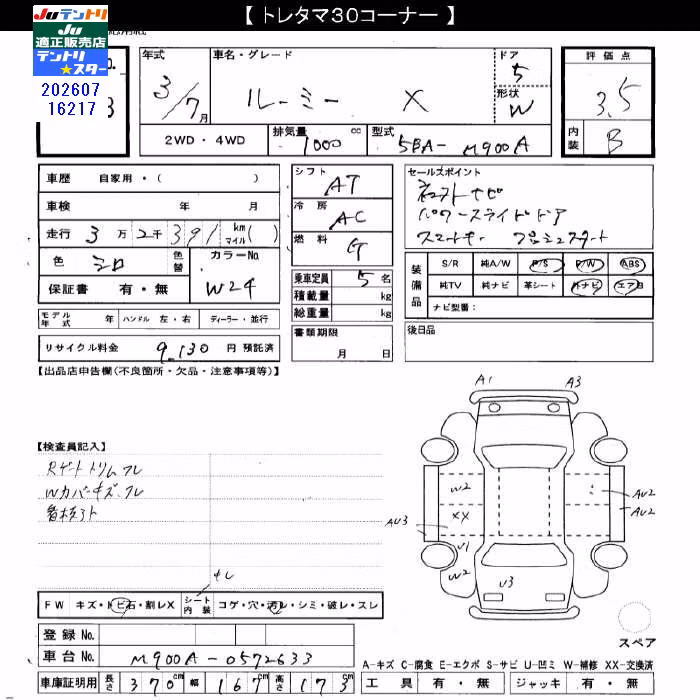 【 トレタマ30コーナー 】
Juテントリ
Ju
適正販売店
テントリ
★スター
202607
16217
No.
3
年式
3/7月
車名・グレード
ルーミー X
ドア
5
形状
W
評価点
3.5
内装
B
2WD ・ 4WD
排気量 1000 cc
型式 5BA- M900A
車歴 自家用・( )
車検 年 月
走行 3万 2千 391 km マイル( )
色 シロ 色替
カラーNo. W24
保証書 有・無
シフト AT
冷房 AC
燃料 G
乗車定員 5 名
積載量 kg
総重量 kg
セールスポイント
パワースライドドア
スマートキー プッシュスタート
装備品
S/R 純A/W P/S P/W ABS
純TV 純ナビ 革シート 外ナビ エアB
ナビ型番:
モデル年式 年 ハンドル 左・右 ディーラー・並行
リサイクル料金 9,130 円 預託済
書類期限
月 日
後日品
【出品店申告欄(不良箇所・欠品・注意事項等)】
【検査員記入】
Rゲートトリムワレ
Wカバーキズ、ワレ
A1 A3
W2
XX
AU3
AU2
AU2
U1
W2
U3
FW キズ・トビ石・割レX
シート内装 コゲ・穴・汚レ・シミ・破レ・スレ
スペア
登録 No.
車台 No. M900A-0572633
車庫証明用 長さ 370cm 幅 167cm 高さ 173cm
A-キズ C-腐食 E-エクボ S-サビ U-凹ミ W-補修 XX-交換済
工具 有・無 ジャッキ 有・無